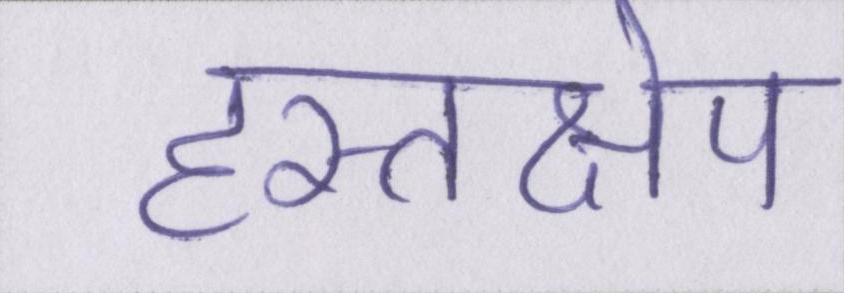 हस्तक्षेप